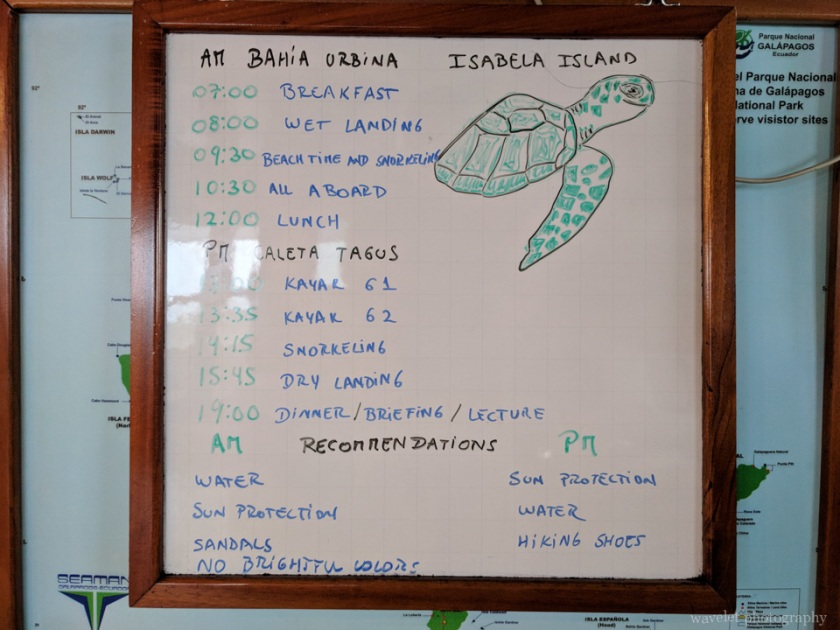 AM BAHÍA URBINA ISABELA ISLAND
07:00 BREAKFAST
08:00 WET LANDING
09:30 BEACH TIME AND SNORKELING
10:30 ALL ABOARD
12:00 LUNCH
PM CALETA TAGUS
KAYAK G1
13:35 KAYAK G2
14:15 SNORKELING
15:45 DRY LANDING
19:00 DINNER/BRIEFING/LECTURE
AM RECOMMENDATIONS PM
WATER
SUN PROTECTION
SANDALS
NO BRIGHTFUL COLORS
SUN PROTECTION
WATER
HIKING SHOES
Parque Nacional
GALÁPAGOS
Ecuador
el Parque Nacional
na de Galápagos
National Park
erve visitor sites
92°
92°
ISLA DARWIN
ISLA WOLF
ISLA FE
(Nor
ISLA ESPAÑOLA
(Hood)
SEAMAN
wavelet photography